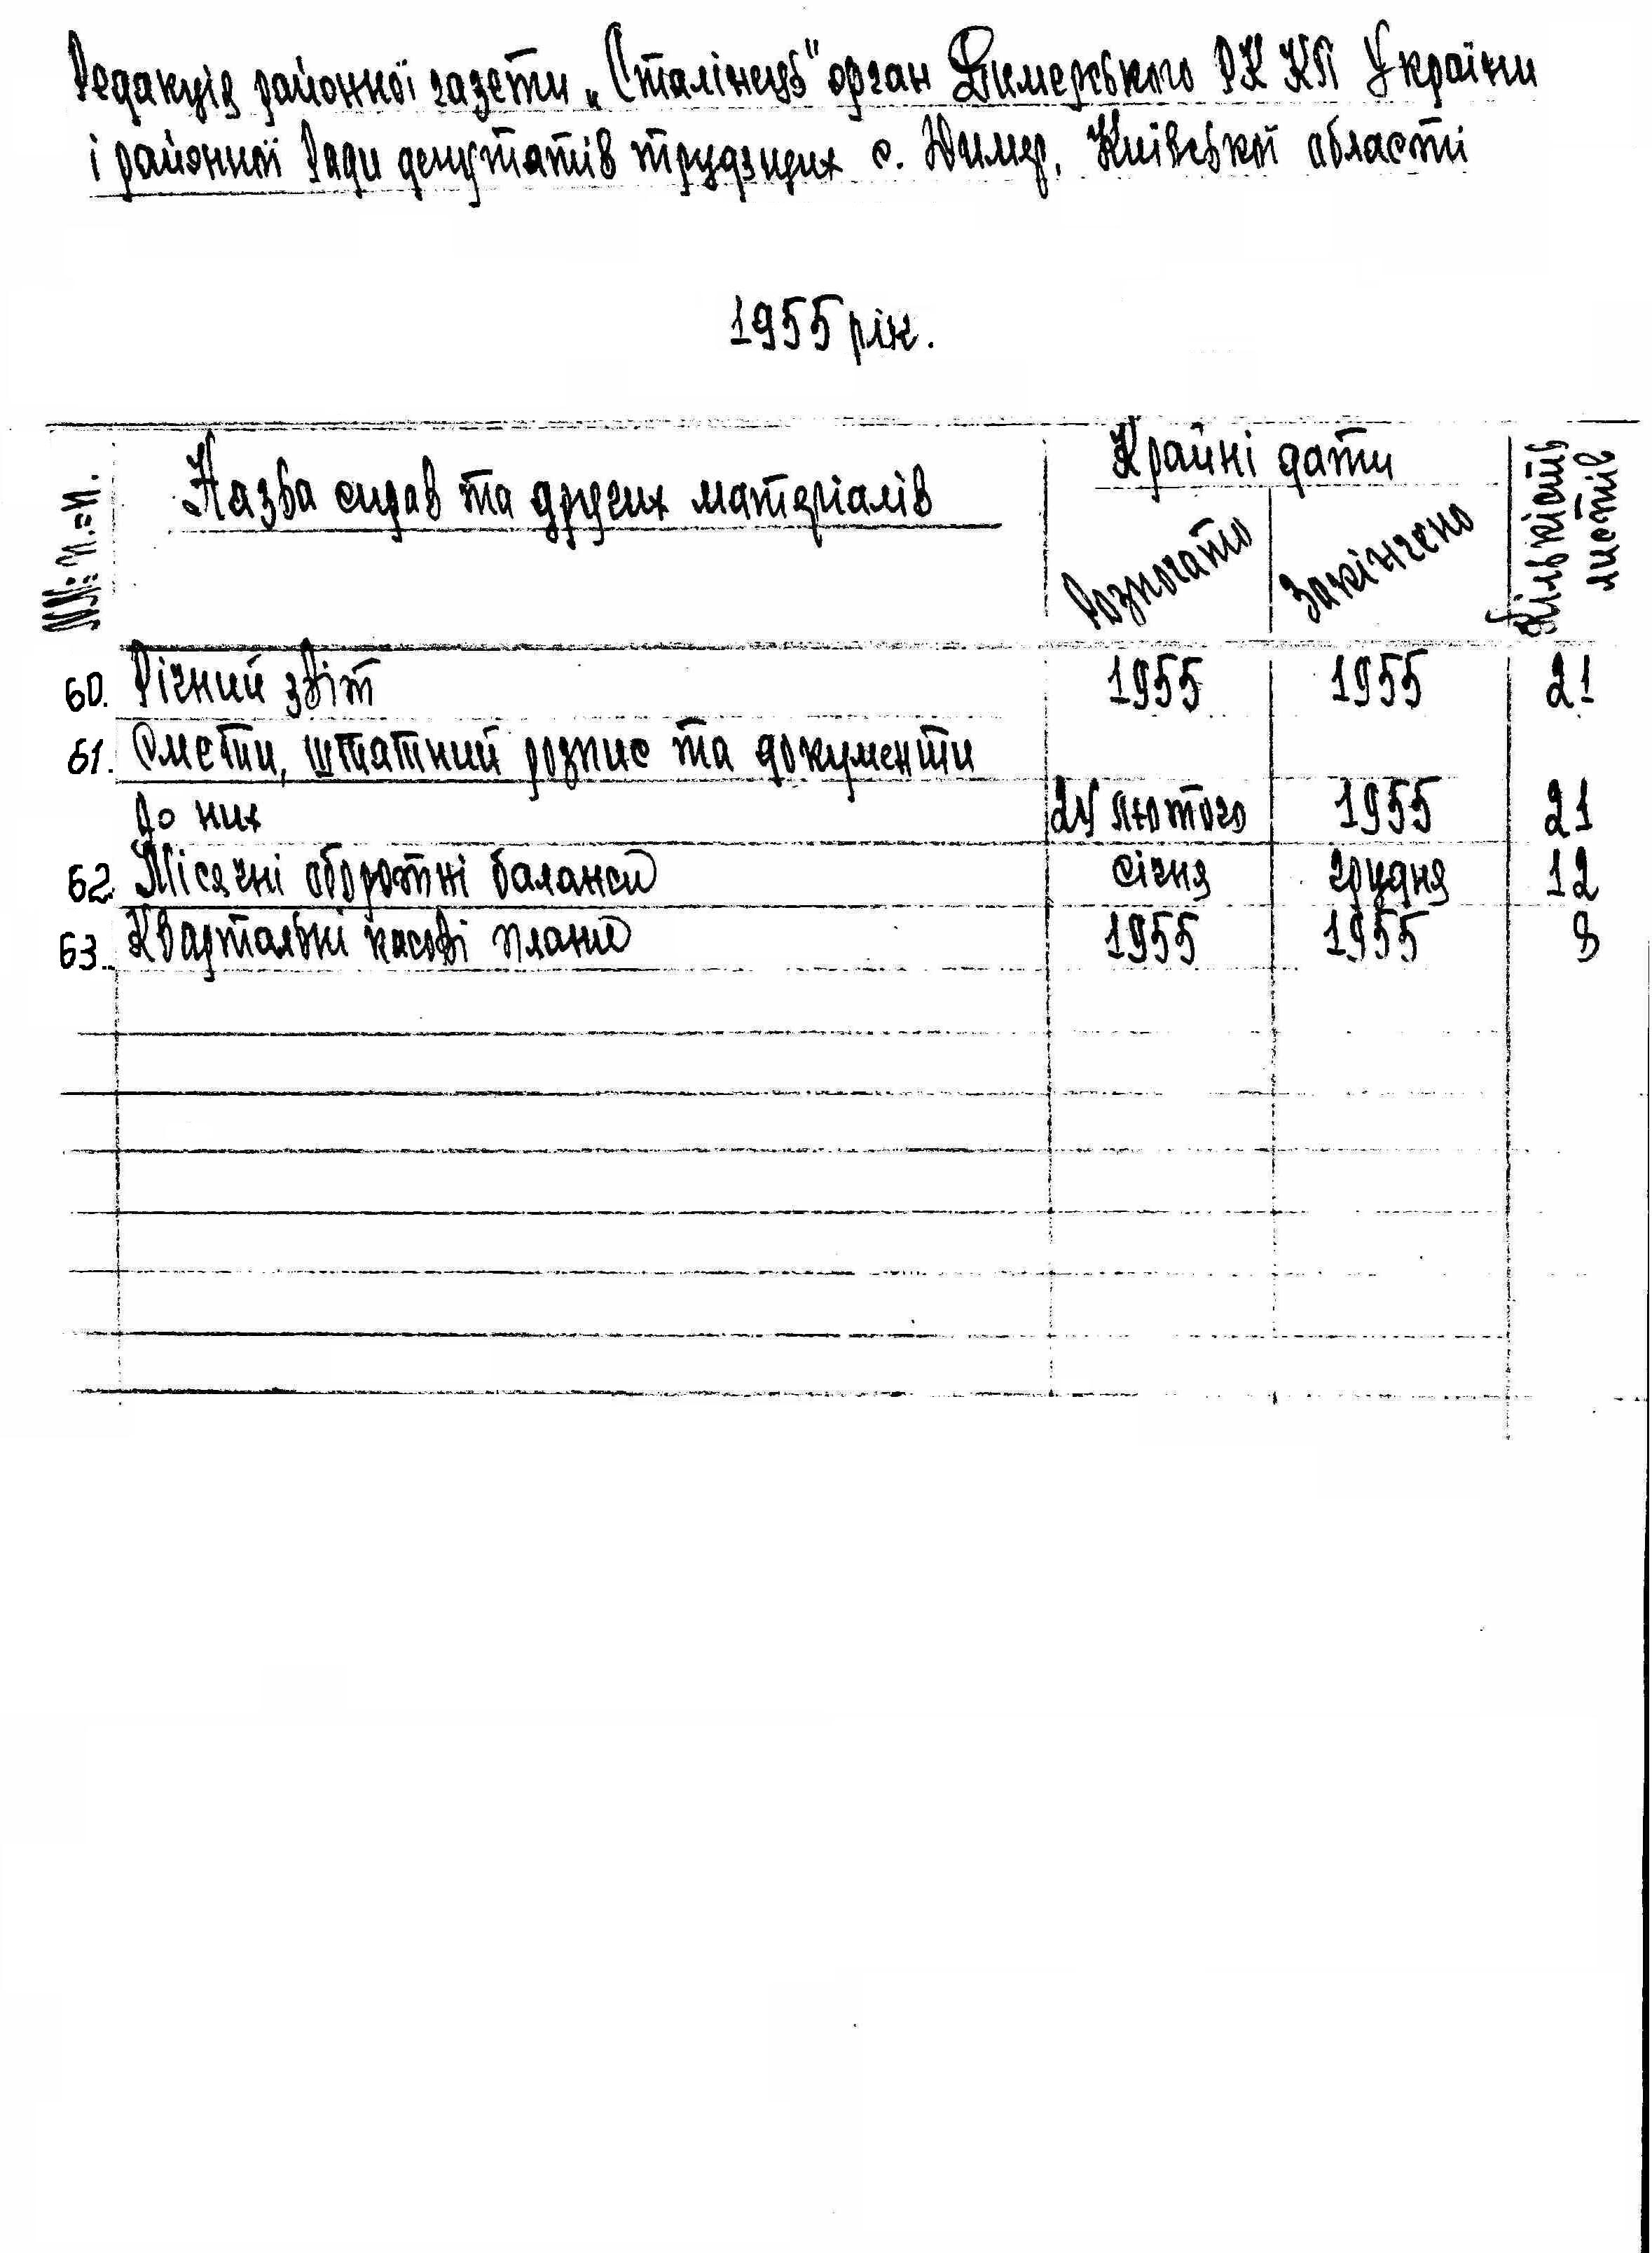 Редакція районної газети „Сталінець" орган Димерського РК КП України
і районної Ради депутатів трудящих с. Димер, Київської області
1955 рік.
NN: п.=п.
Назва справ та других матеріалів
Крайні дати
Розпочато
Закінчено
Кількість
листів
60. Річний звіт 1955 1955 21
61. Смети, штатний розпис та документи
до них 24 лютого 1955 21
62. Місячні оборотні баланси січня грудня 12
63. Квартальні касові плани 1955 1955 8